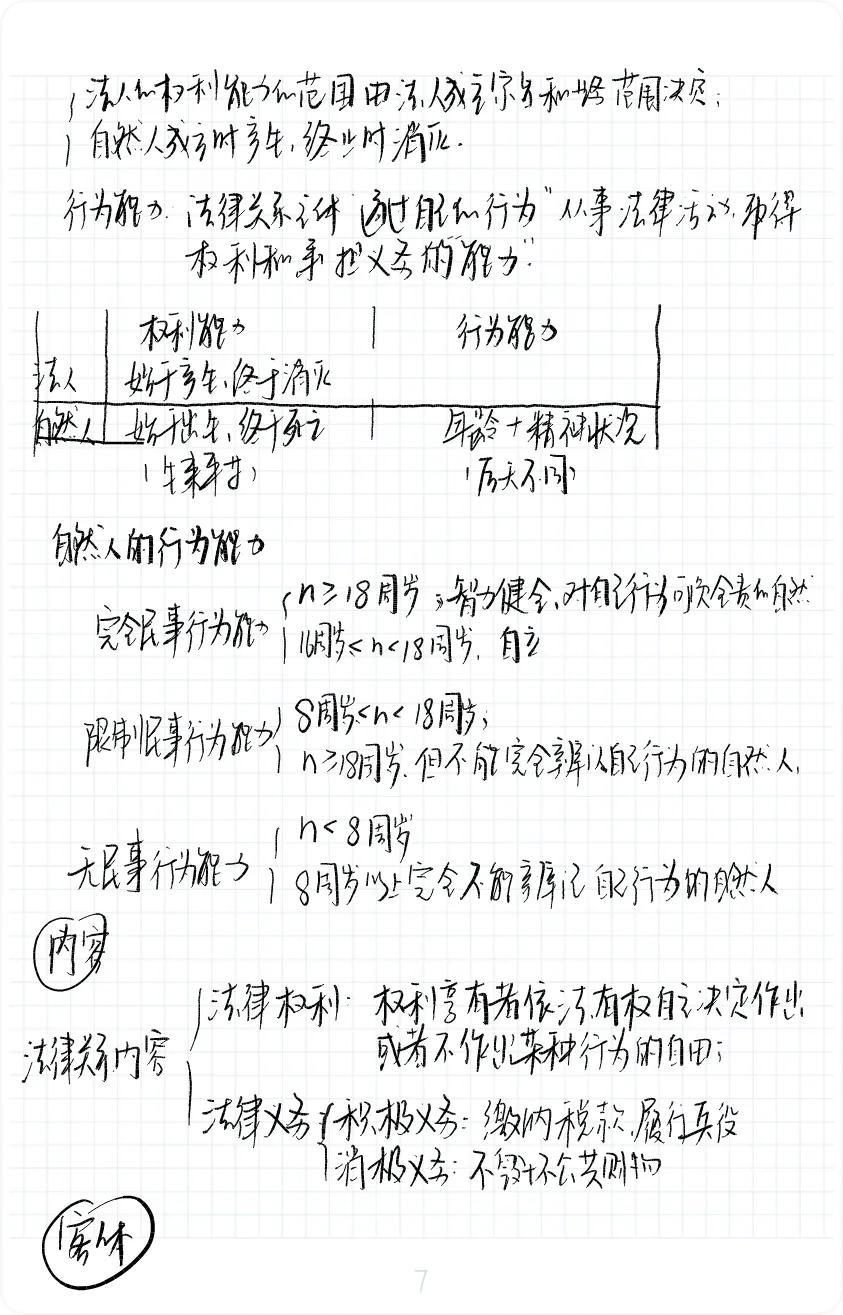 法人的权利能力的范围由法人成立宗旨和业务范围决定;
自然人成立时产生,终止时消灭.
行为能力 法律关系主体"通过自己的行为"从事法律活动,取得
权利和承担义务的"能力"
权利能力 行为能力
法人 始于产生,终于消灭
自然人 始于出生,终于死亡 年龄+精神状况
(生来平等) (后天不同)
自然人的行为能力
n≥18周岁,智力健全,对自己行为可负全责的自然
完全民事行为能力
16周岁≤n<18周岁,自立
8周岁≤n<18周岁;
限制民事行为能力
n≥18周岁,但不能完全辨认自己行为的自然人,
n<8周岁
无民事行为能力
8周岁以上完全不能辨认自己行为的自然人
内容
法律权利 权利享有者依法有权自主决定作出
或者不作出某种行为的自由;
法律关系内容
法律义务 积极义务:缴纳税款,履行兵役
消极义务:不毁坏公共财物
客体
7